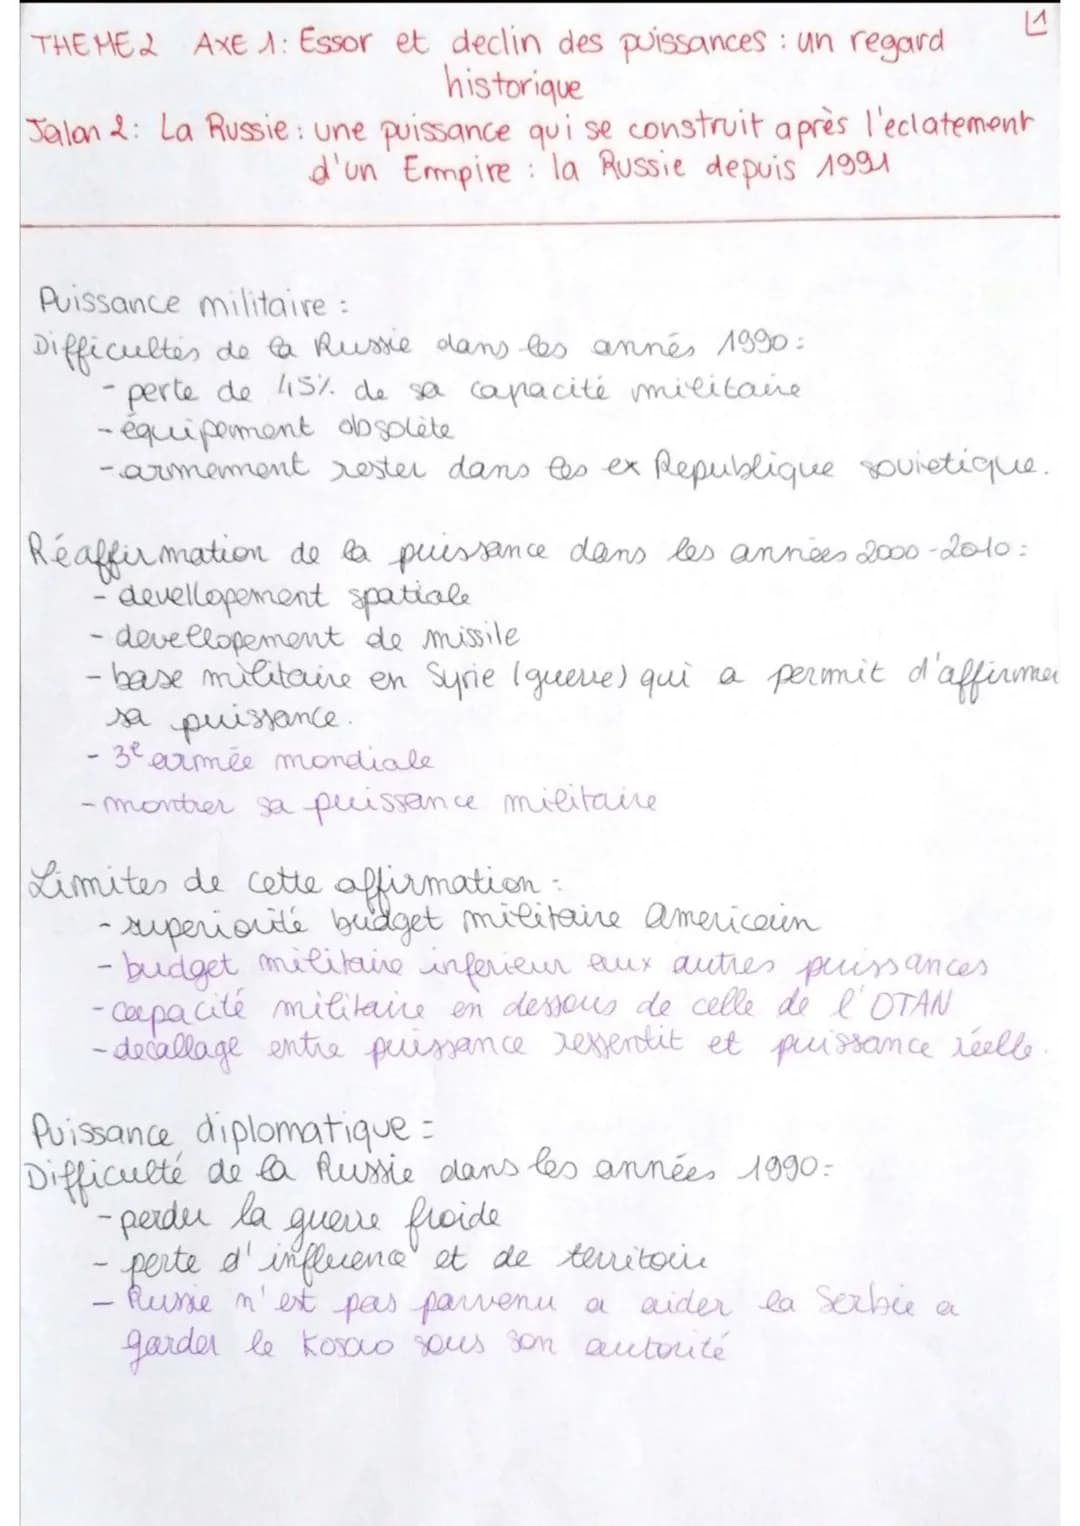 1
THEME 2 AXE 1: Essor et declin des puissances : un regard
historique
Jalon 2: La Russie : une puissance qui se construit après l'eclatement
d'un Emmpire : la Russie depuis 1991
Puissance militaire :
Difficultés de la Russie dans les annés 1990 :
- perte de 45% de sa capacité militaire
- équipement obsolète
- armement rester dans les ex Republique sovietique.
Réaffirmation de la puissance dans les années 2000-2010 :
- devellopement spatiale
- devellopement de missile
- base militaire en Syrie (guerre) qui a permit d'affirmer
sa puissance.
- 3e armée mondiale
- montrer sa puissance militaire
Limites de cette affirmation :
- superiorité budget militaire americain
- budget militaire inferieur aux autres puissances
- capacité militaire en dessous de celle de l'OTAN
- decallage entre puissance ressentit et puissance réelle.
Puissance diplomatique :
Difficulté de la Russie dans les années 1990 :
- perdu la guerre froide
- perte d'influence et de territoire
- Russie n'est pas parvenu a aider la Serbie a
garder le Kosovo sous son autorité